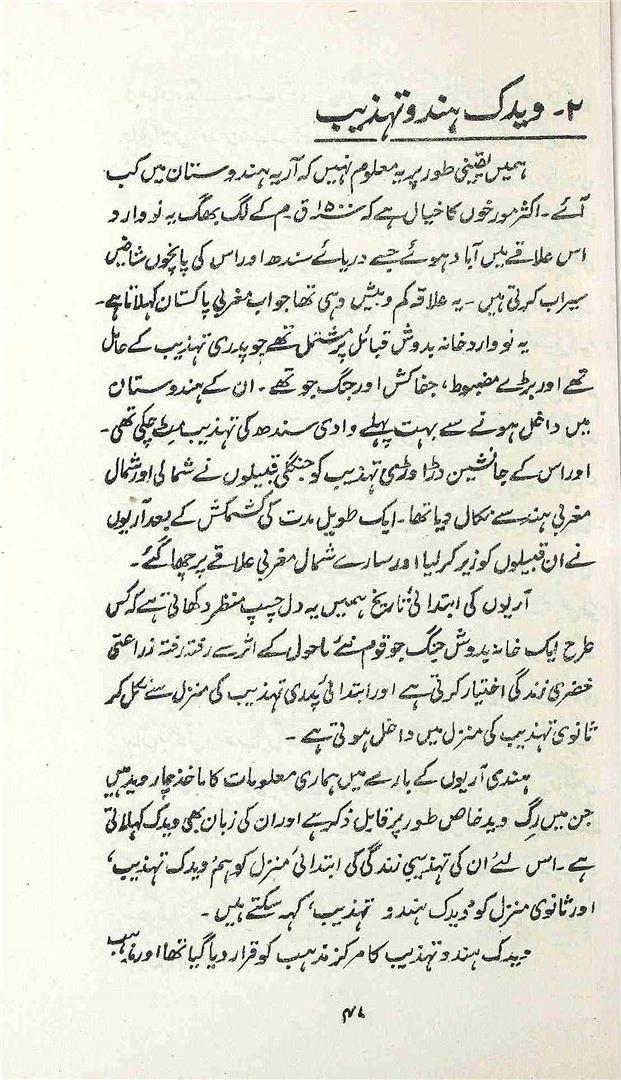 ۲۔ ویدک ہندو تہذیب
ہمیں یقینی طور پر یہ معلوم نہیں کہ آریہ ہندوستان میں کب
آئے۔ اکثر مورخوں کا خیال ہے کہ ۱۵۰۰ ق۔م کے لگ بھگ یہ نووارد
اس علاقے میں آباد ہوئے جسے دریائے سندھ اور اس کی پانچوں شاخیں
سیراب کرتی ہیں۔ یہ علاقہ کم و بیش وہی تھا جو اب مغربی پاکستان کہلاتا ہے۔
یہ نووارد خانہ بدوش قبائل پر مشتمل تھے جو پدری تہذیب کے حامل
تھے اور بڑے مضبوط، جفاکش اور جنگ جو تھے۔ ان کے ہندوستان
میں داخل ہونے سے بہت پہلے وادی سندھ کی تہذیب مٹ چکی تھی۔
اور اس کے جانشین دڑاوڑی تہذیب کو جنگلی قبیلوں نے شمالی اور شمال
مغربی ہند سے نکال دیا تھا۔ ایک طویل مدت کی کشمکش کے بعد آریوں
نے ان قبیلوں کو زیر کر لیا اور سارے شمال مغربی علاقے پر چھا گئے۔
آریوں کی ابتدائی تاریخ ہمیں یہ دل چسپ منظر دکھاتی ہے کہ کس
طرح ایک خانہ بدوش جنگ جو قوم نئے ماحول کے اثر سے رفتہ رفتہ زراعتی
حضری زندگی اختیار کرتی ہے اور ابتدائی پدری تہذیب کی منزل سے نکل کر
ثانوی تہذیب کی منزل میں داخل ہوتی ہے۔
ہندی آریوں کے بارے میں ہماری معلومات کا ماخذ چار وید ہیں
جن میں رگ وید خاص طور پر قابل ذکر ہے اور ان کی زبان بھی ویدک کہلاتی
ہے۔ اس لئے ان کی تہذیبی زندگی کی ابتدائی منزل کو ہم ’ویدک تہذیب‘
اور ثانوی منزل کو ’ویدک ہندو تہذیب‘ کہہ سکتے ہیں۔
ویدک ہندو تہذیب کا مرکز مذہب کو قرار دیا گیا تھا اور مذہب